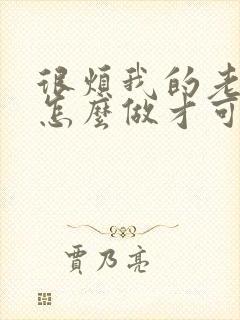 很煩我的老
怎麼做才可
賈乃亮